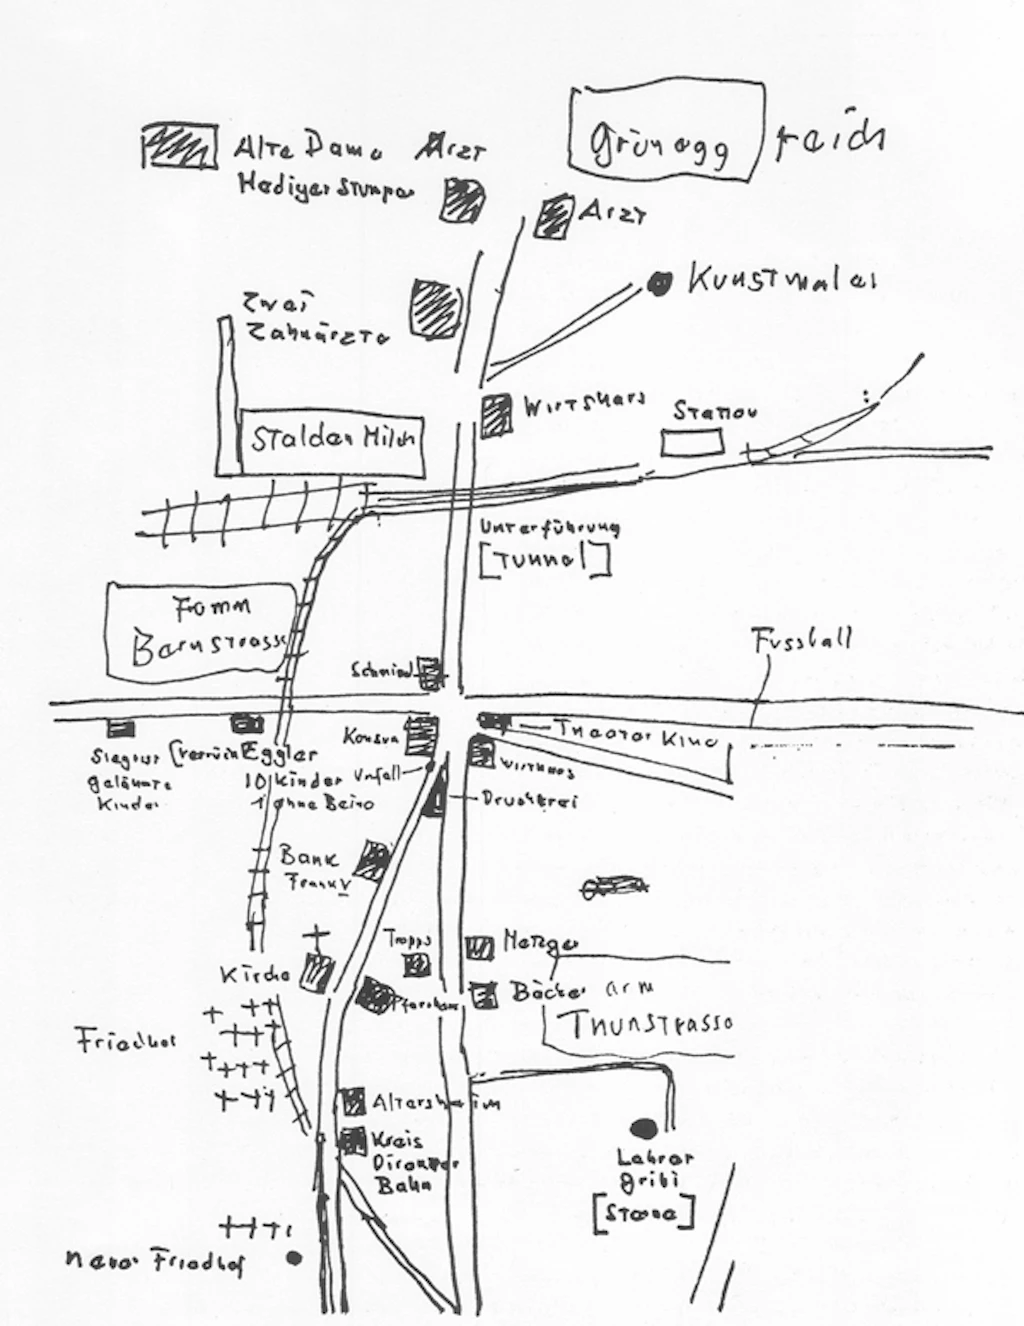 Grünegg reich
Alte Dame Arzt
Hediger Stumpen
Arzt
Kunstmaler
Zwei
Zahnärzte
Wirtshaus
Station
Stalden Milch
Unterführung
[Tunnel]
Fomm
Bernstrasse
Fussball
Schmied
Konsum
Theater Kino
Eggler
gelähmte
Kinder
10 Kinder Unfall
1 ohne Beine
Wirthaus
Druckerei
Bank
Franky
Metzger
Kirche
Pfarrhaus
Bäcker arm
Thunstrasse
Friedhof
Altersheim
Kreis
Direktor
Bahn
Lehrer
gribi
[Sterne]
neuer Friedhof